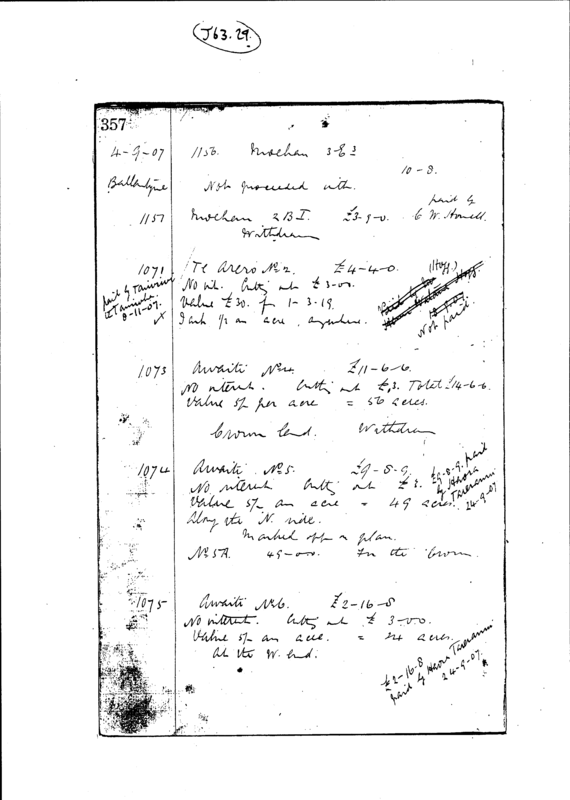 J63.29.
357
4-9-07 1156. Mochau 3 E 3
10-8.
Ballantyne Not proceeded with.
1157 Mochau 2 B I. £3-9-0. paid by C W. Howell.
Withdrawn
1071 Te Arero No 2. £4-4-0. (Hoff.)
paid by 8-11-07.
No int. Cutting out £3-0-0.
Value £30. for 1-3-19.
Not paid.
1073 Awaiti No 4. £11-6-6.
No interest. Cutting out £3. Total £14-6-6.
Value 5/- per acre = 56 acres.
Crown land. Withdrawn
1074 Awaiti No 5. £9-8-9. £9-8-9. paid by Haora Tareranui 24-9-07
No interest Cutting out £3.
Value 5/- an acre = 49 acres.
Along the N. side.
Marked off on plan.
No 5A. 49-0-0. For the Crown.
1075 Awaiti No 6. £2-16-8
No interest. Cutting out £3-0-0.
Value 5/- an acre. = 24 acres.
At the W. end.
£2-16-8 paid by Haora Tareranui 24-9-07.